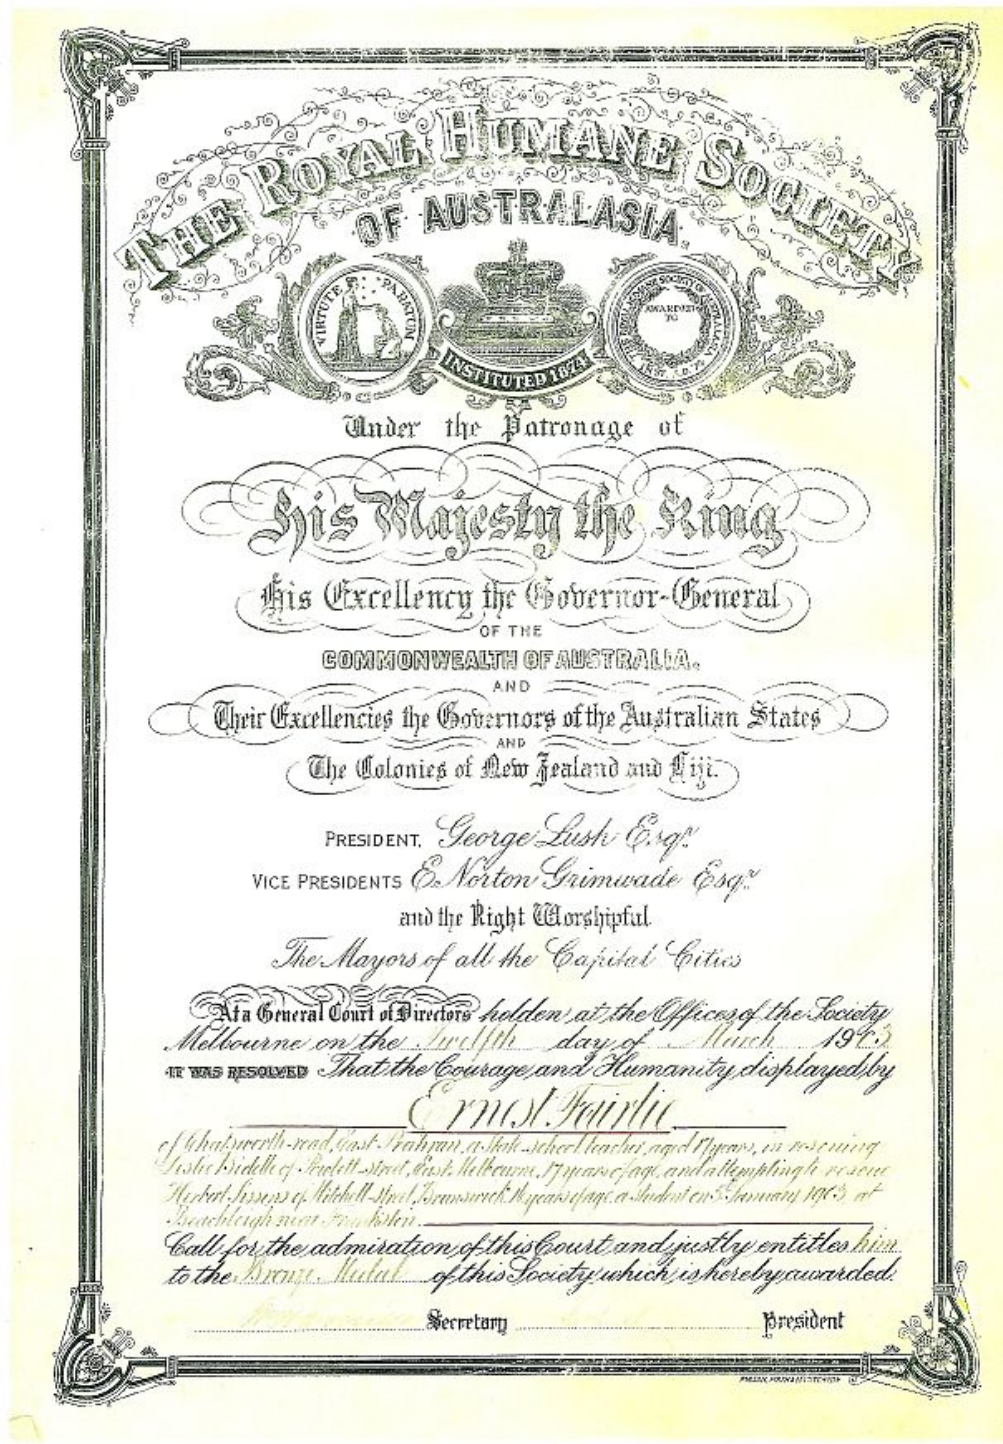 THE ROYAL HUMANE SOCIETY
OF AUSTRALASIA.
VIRTUTE PARATUM
INSTITUTED 1874
ROYAL HUMANE SOCIETY OF AUSTRALASIA
AWARDED
TO
Under the Patronage of
His Majesty the King
His Excellency the Governor-General
OF THE
COMMONWEALTH OF AUSTRALIA.
AND
Their Excellencies the Governors of the Australian States
AND
The Colonies of New Zealand and Fiji.
PRESIDENT, George Lush Esqr.
VICE PRESIDENTS E. Norton Grimwade Esqr.
and the Right Worshipful
The Mayors of all the Capital Cities
At a General Court of Directors holden at the Offices of the Society
Melbourne on the Twelfth day of March 1903
IT WAS RESOLVED That the Courage and Humanity displayed by
Ernest Fairlie
of Chatsworth-road, East Prahran, a State-school teacher, aged 17 years, in rescuing
Leslie of Powlett-street, East Melbourne, 17 years of age, and attempting to rescue
Herbert of Mitchell-street, Brunswick years of age, a Student on 5 January 1903 at
near Frankston.
Call for the admiration of this Court and justly entitles him
to the Bronze Medal of this Society which is hereby awarded.
Secretary President